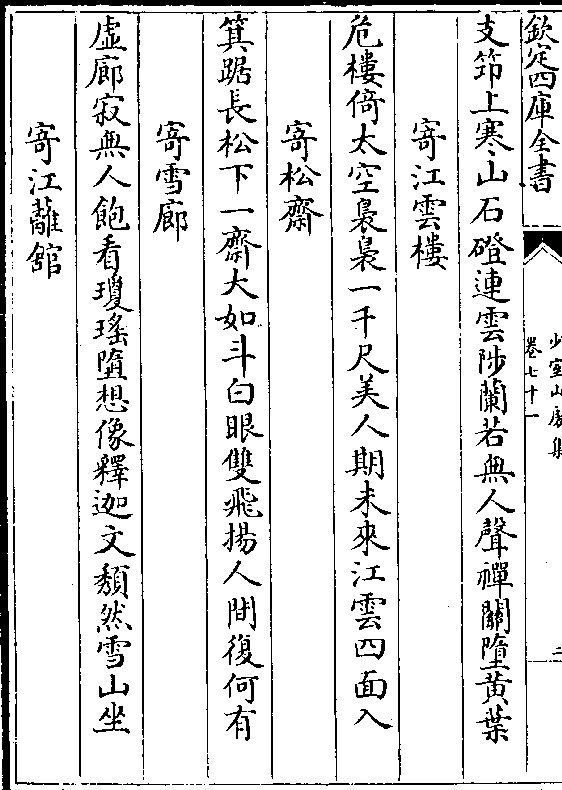 欽定四庫全書
少室山房集
卷七十一
二
支笻上寒山石磴連雲陟蘭若無人聲禪關墮黃葉
寄江雲樓
危樓倚太空裊裊一千尺美人期未來江雲四面入
寄松齋
箕踞長松下一齋大如斗白眼雙飛揚人間復何有
寄雪廊
虛廊寂無人飽看瓊瑤墮想像釋迦文頹然雪山坐
寄江蘺舘